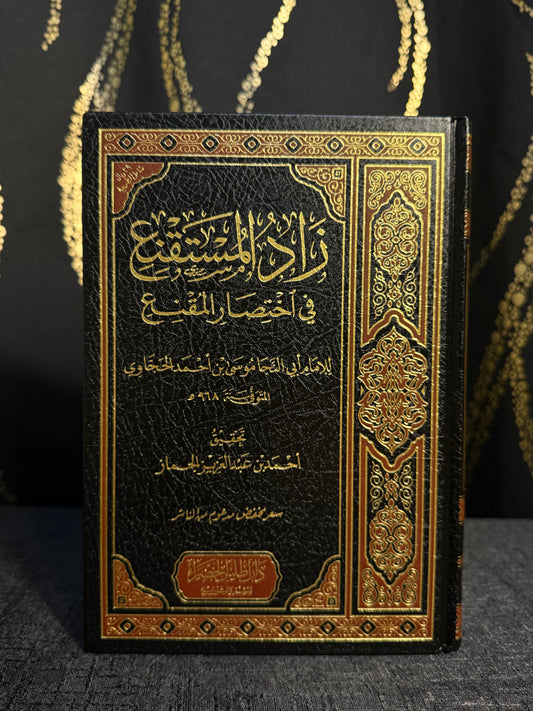 زَادُ المُسْتَقْنِع
في اخْتِصَارِ المُقْنِع
للإمام أبي النجا موسى بن أحمد الحجاوي
المتوفى سنة ٩٦٨ هـ
تحقيق
أحمد بن عبد العزيز الجماز
سعر مخفض مدعوم من الناشر